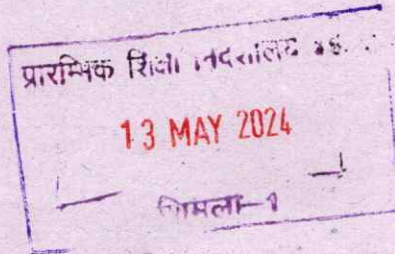 प्रारम्भिक शिक्षा निदेशालय
13 MAY 2024
शिमला-1